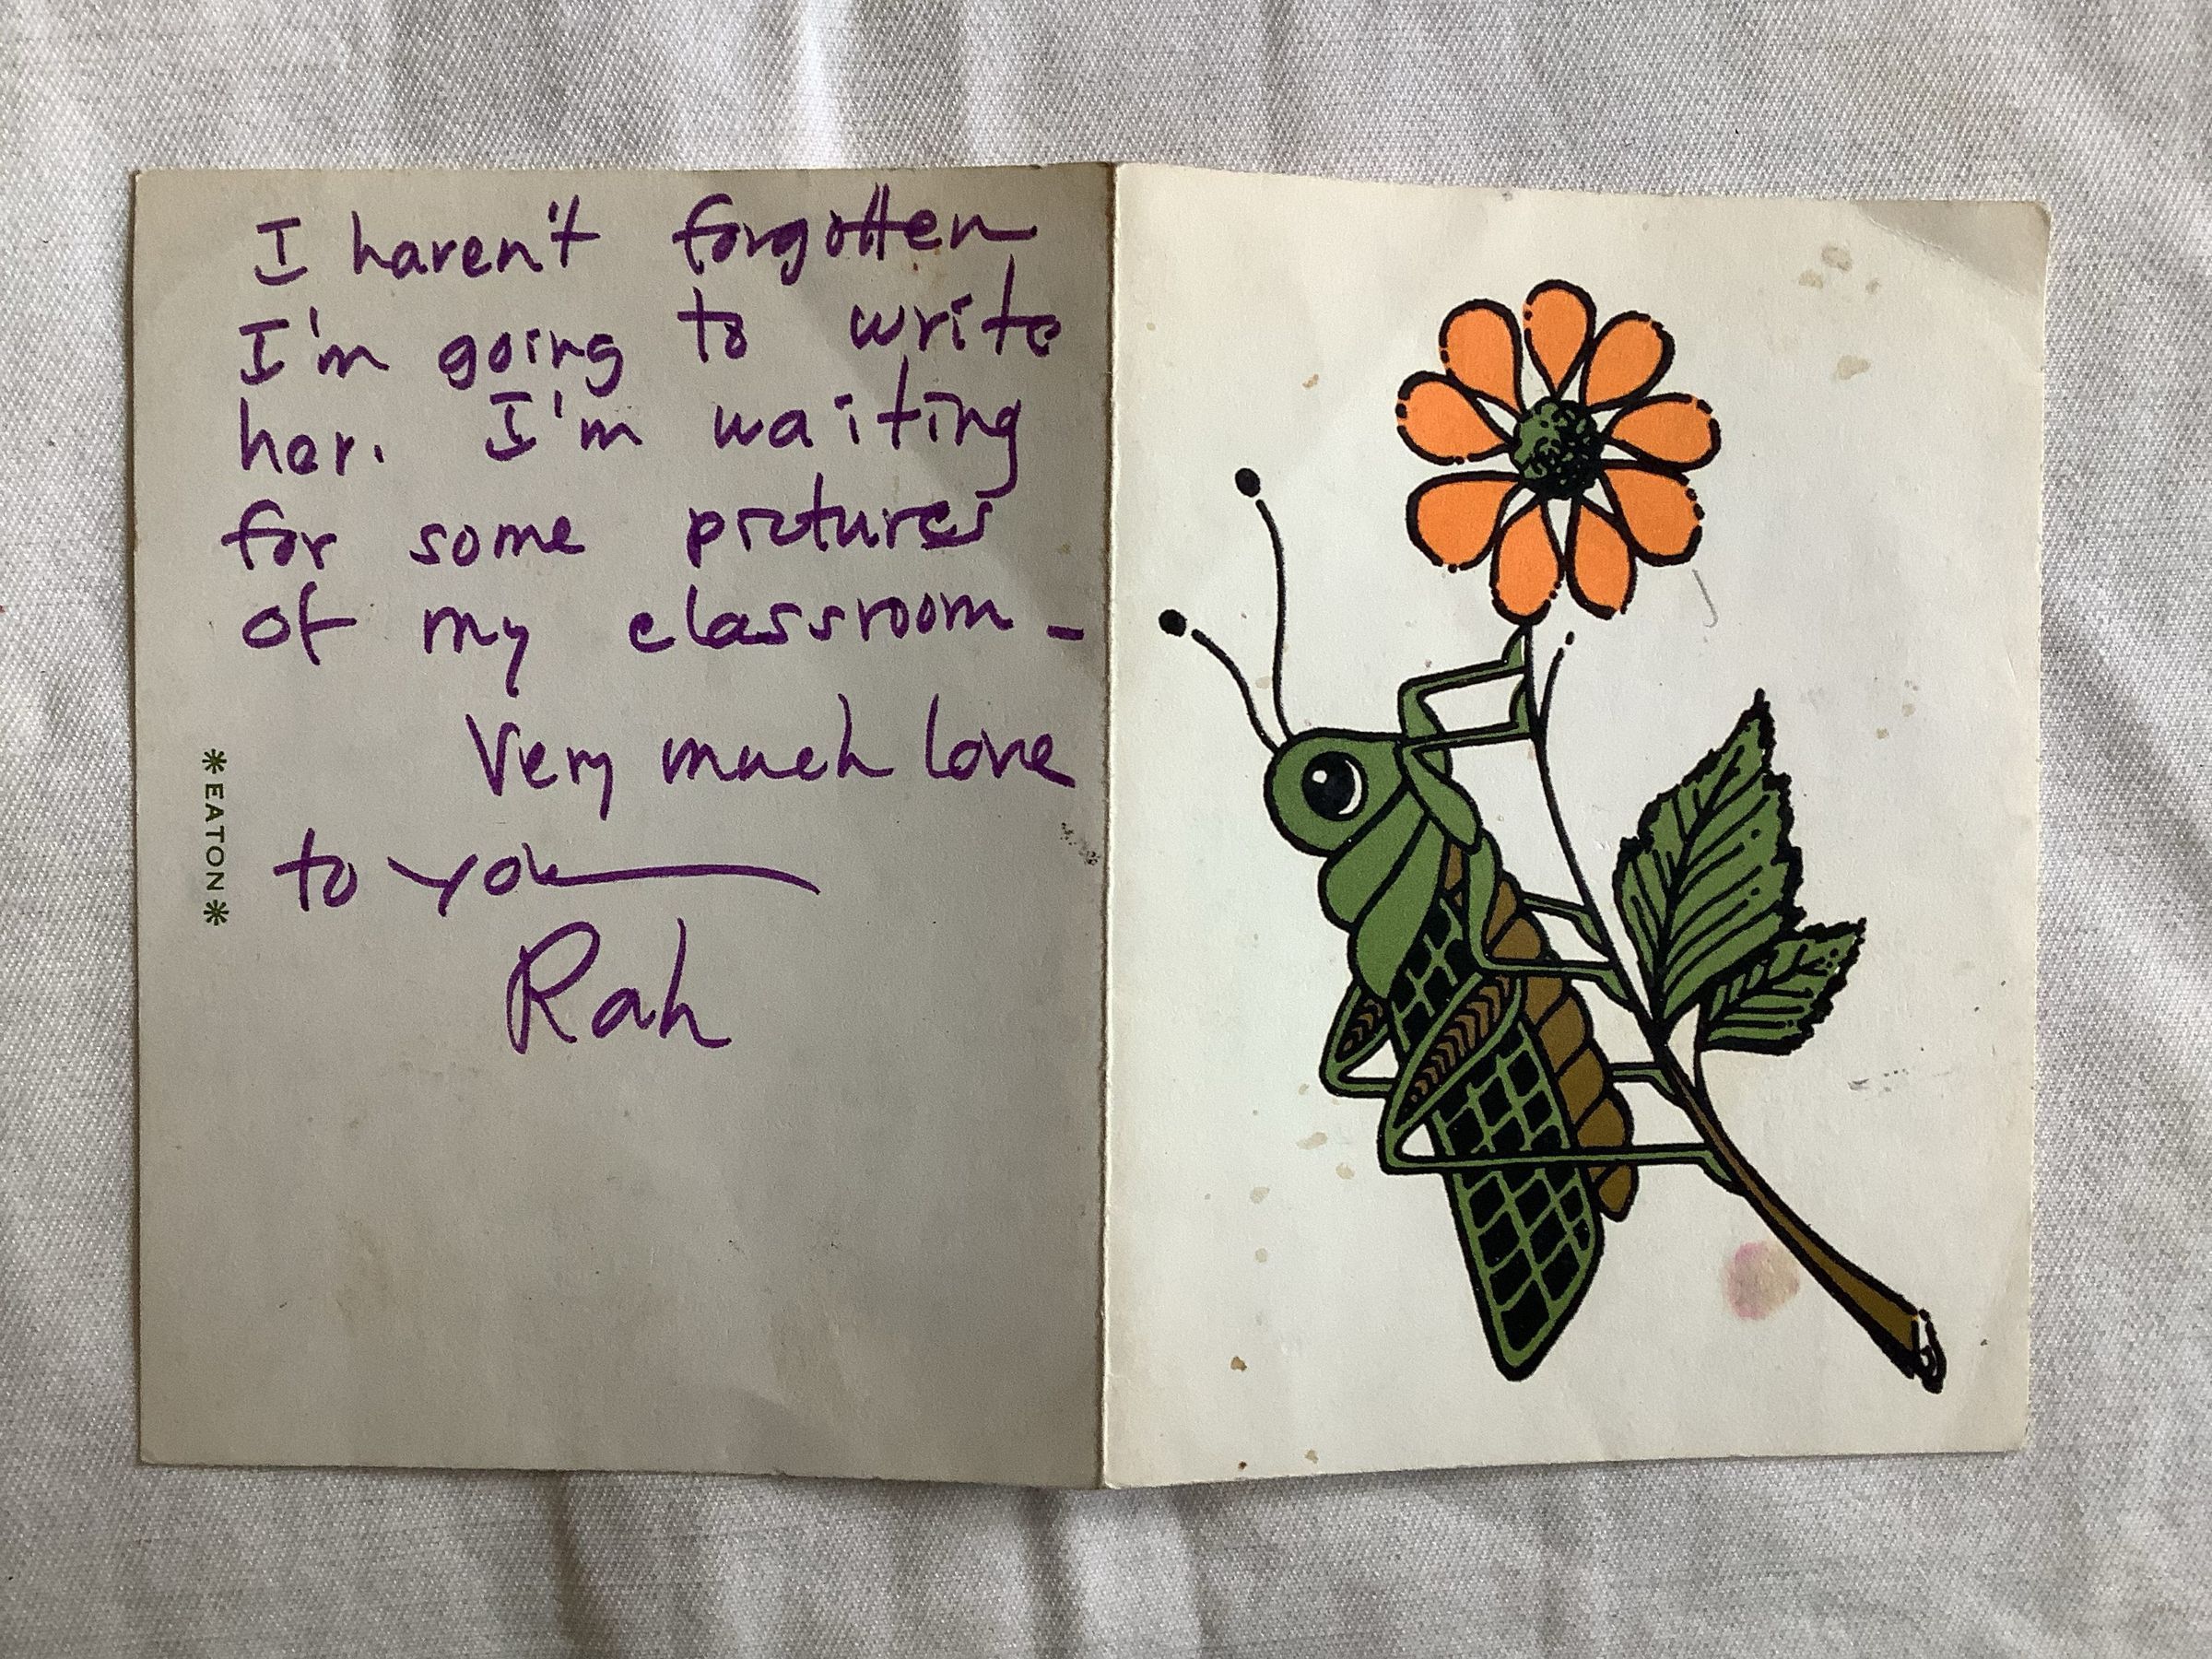 I haven't forgotten
I'm going to write
her. I'm waiting
for some pictures
of my classroom –
Very much love
to you
Rah
*EATON*